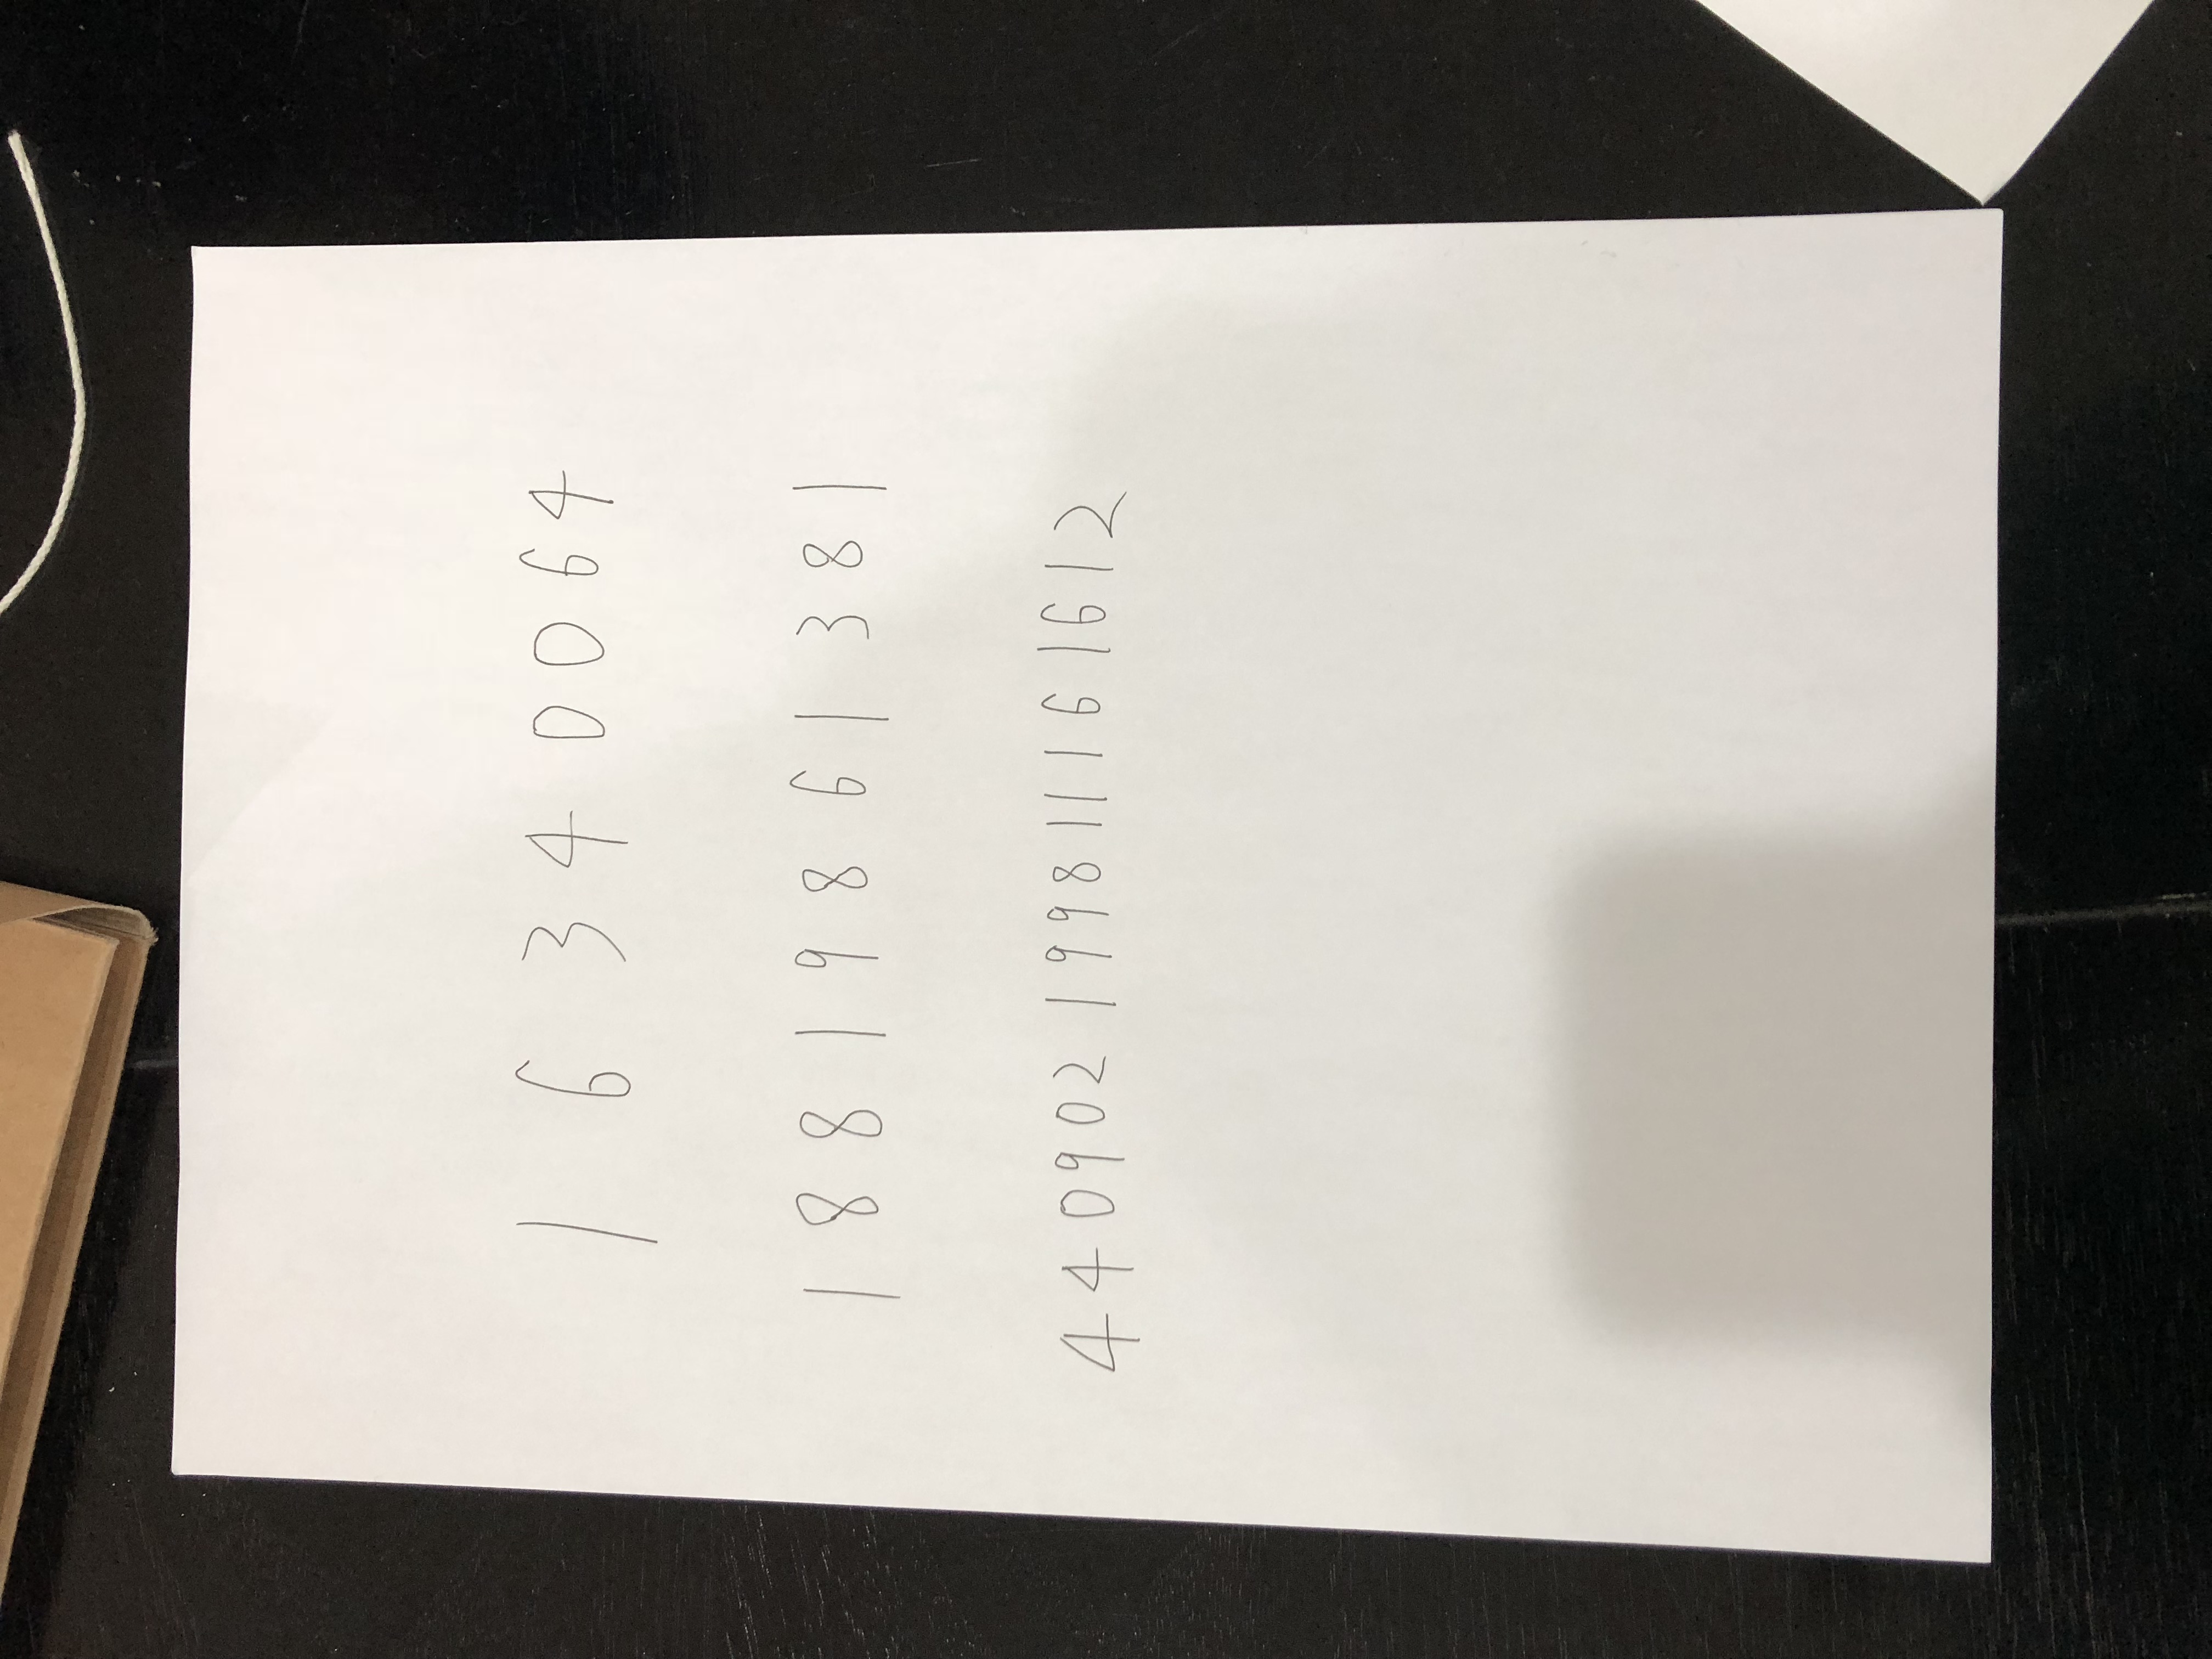 1 6 3 4 0 0 6 4
1 8 8 1 9 8 6 1 3 8 1
440902199811161612